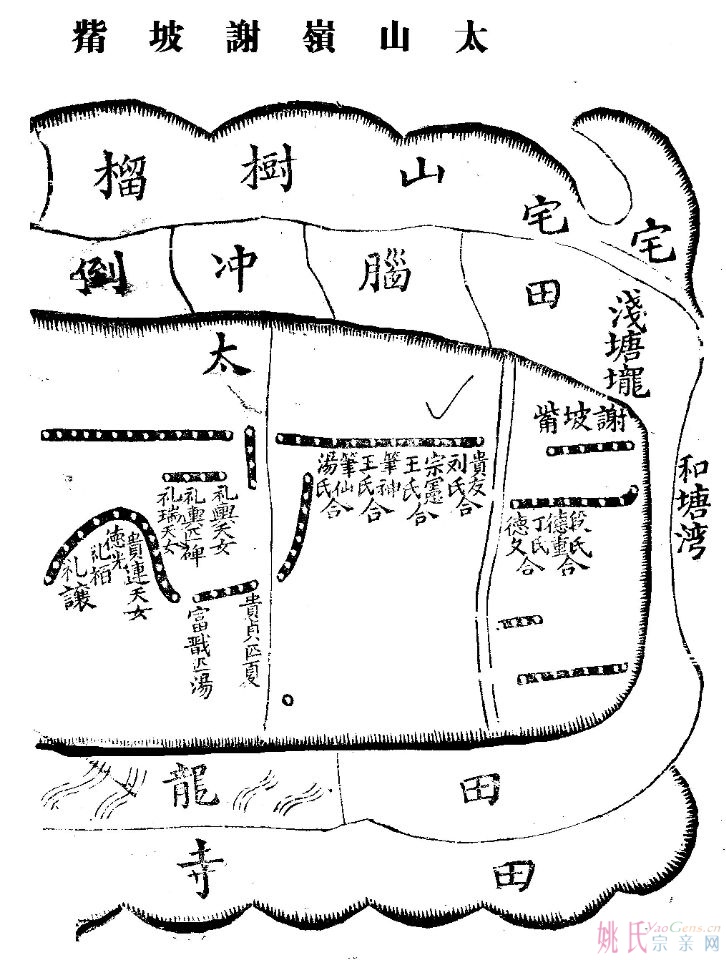 太山嶺謝坡觜
宅山樹榴
宅
田腦冲倒
淺塘壠
謝坡觜
和塘湾
太
貴友
刘氏合
宗憲
王氏合
筆神
王氏合
筆仙
湯氏合
段氏
德重合
丁氏
德文合
礼興天女
礼瑞天女
貴連天女
德光
礼栢
礼讓
貴貞匹夏
田龍
田寺
姚氏宗亲网
YaoGens.cn